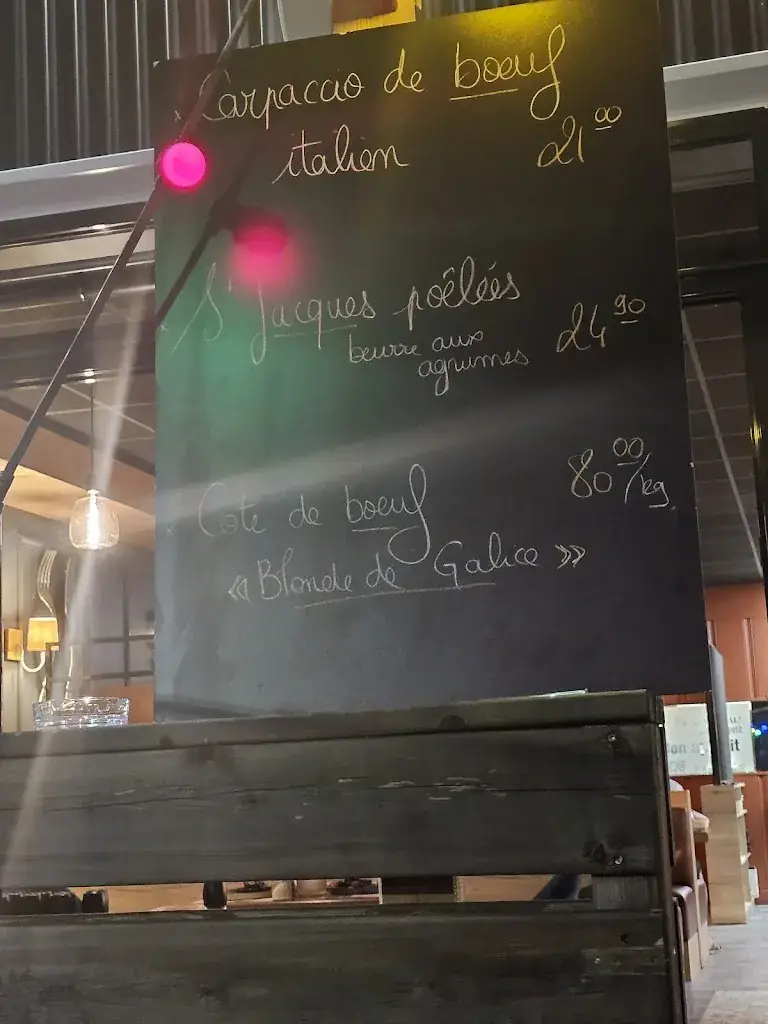 x Carpaccio de boeuf
italien 21 00
St Jacques poêlées
beurre aux
agrumes 24 90
Cote de boeuf 80 00/kg
« Blonde de Galice »